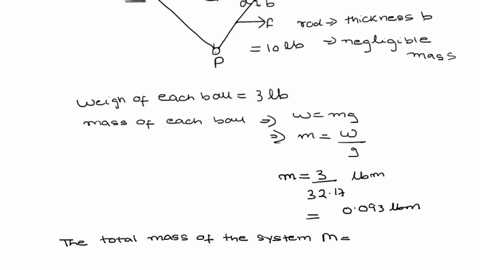 b
→ F rod → thickness b
P = 10 lb ⇒ negligible
mass
Weigh of each ball = 3 lb
mass of each ball ⇒ w = mg
⇒ m = w/g
m = 3/32.17 lbm
= 0.093 lbm
The total mass of the system M =